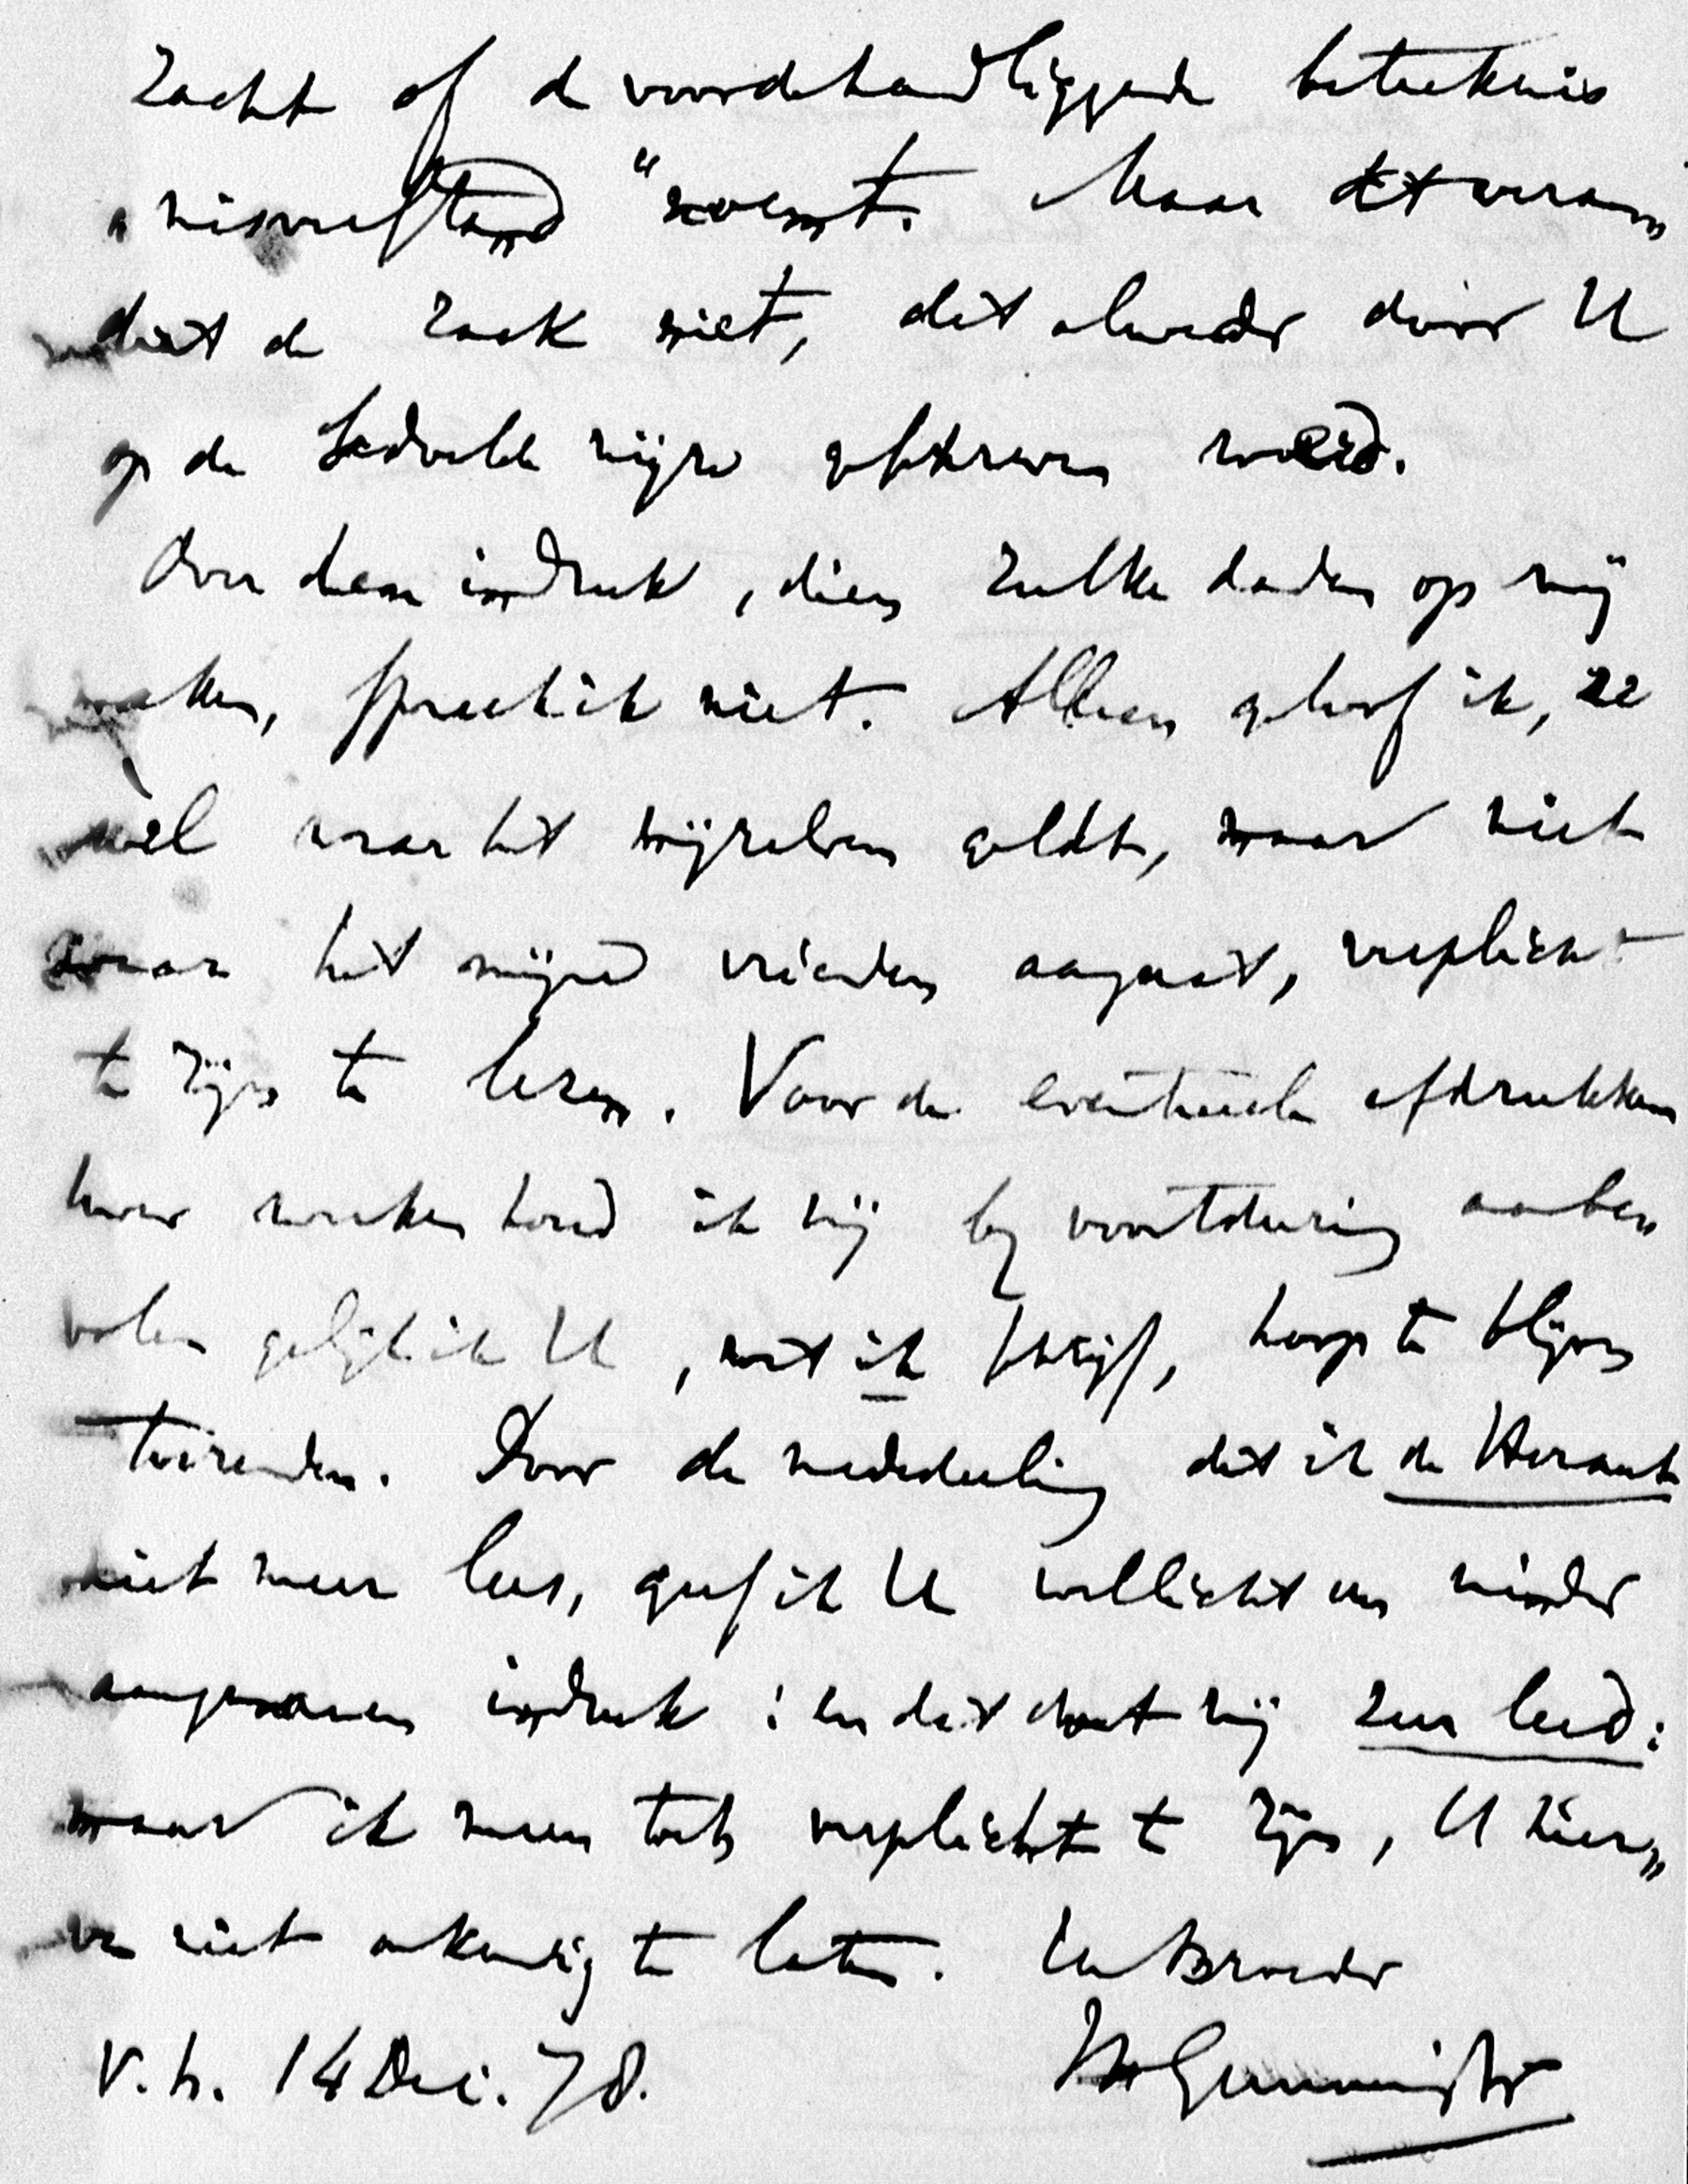 zacht of de voordehandliggende beteekenis
„misverstand" noemt. Maar dit veran„
dert de zaak niet, dat alweder door U
op de bedoelde wijze geschreven werd.
Over den indruk, dien zulke daden op mij
maken, spreek ik niet. Alleen geloof ik, ze
wel waar het mijzelven geldt, maar niet
waar het mijne vrienden aangaat, verplicht
te zijn te lezen. Voor de eventueele afdrukken
uwer werken houd ik mij bij voortduring aanbe
volen gelijk ik U, wat ik schrijf, hoop te blijven
toezenden. Door de mededeeling dat ik de Heraut
niet meer lees, geef ik U wellicht een minder
aangenamen indruk: en dat doet mij zeer leed:
maar ik meen toch verplicht te zijn, U hier„
van niet onkundig te laten. Uw Broeder
V.h. 14 Dec. 78. JH Gunning Jr